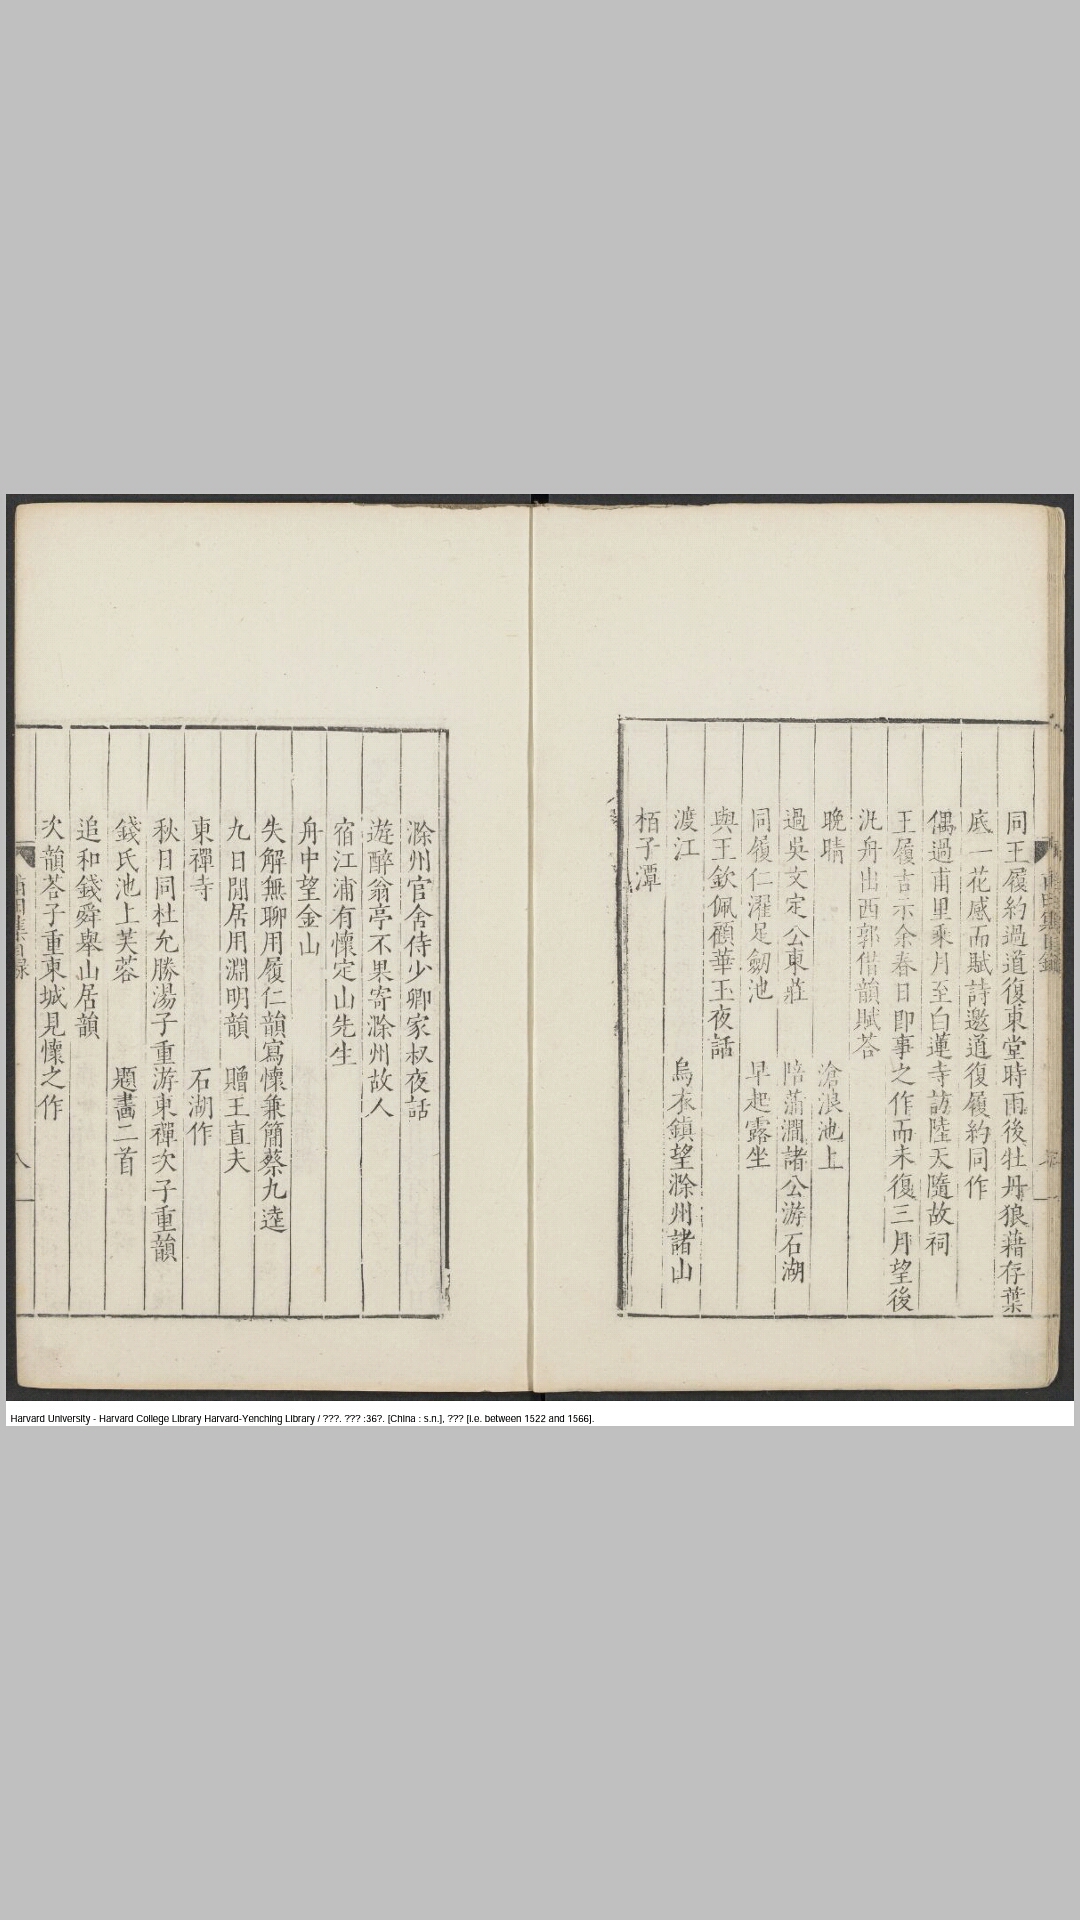 同王履約過道復東堂時雨後牡丹狼藉存葉
底一花感而賦詩邀道復履約同作
偶過甫里乘月至白蓮寺訪陸天隨故祠
王履吉示余春日即事之作而未復三月望後
汎舟出西郭借韻賦荅
晚晴 滄浪池上
過吳文定公東莊 陪蒲澗諸公游石湖
同履仁濯足劒池 早起露坐
與王欽佩顧華玉夜話
渡江 烏衣鎮望滁州諸山
栢子潭
滁州官舍侍少卿家叔夜話
遊醉翁亭不果寄滁州故人
宿江浦有懷定山先生
舟中望金山
失解無聊用履仁韻寫懷兼簡蔡九逵
九日閒居用淵明韻 贈王直夫
東禪寺 石湖作
秋日同杜允勝湯子重游東禪次子重韻
錢氏池上芙蓉 題畵二首
追和錢舜舉山居韻
次韻荅子重東城見懷之作
甫田集目録
八
Harvard University - Harvard College Library Harvard-Yenching Library / ???. ??? :36?. [China : s.n.], ??? [i.e. between 1522 and 1566].